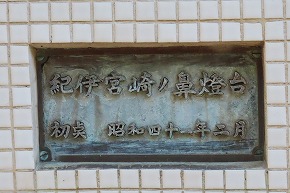 紀伊宮崎ノ鼻燈台
初点 昭和四十一年三月